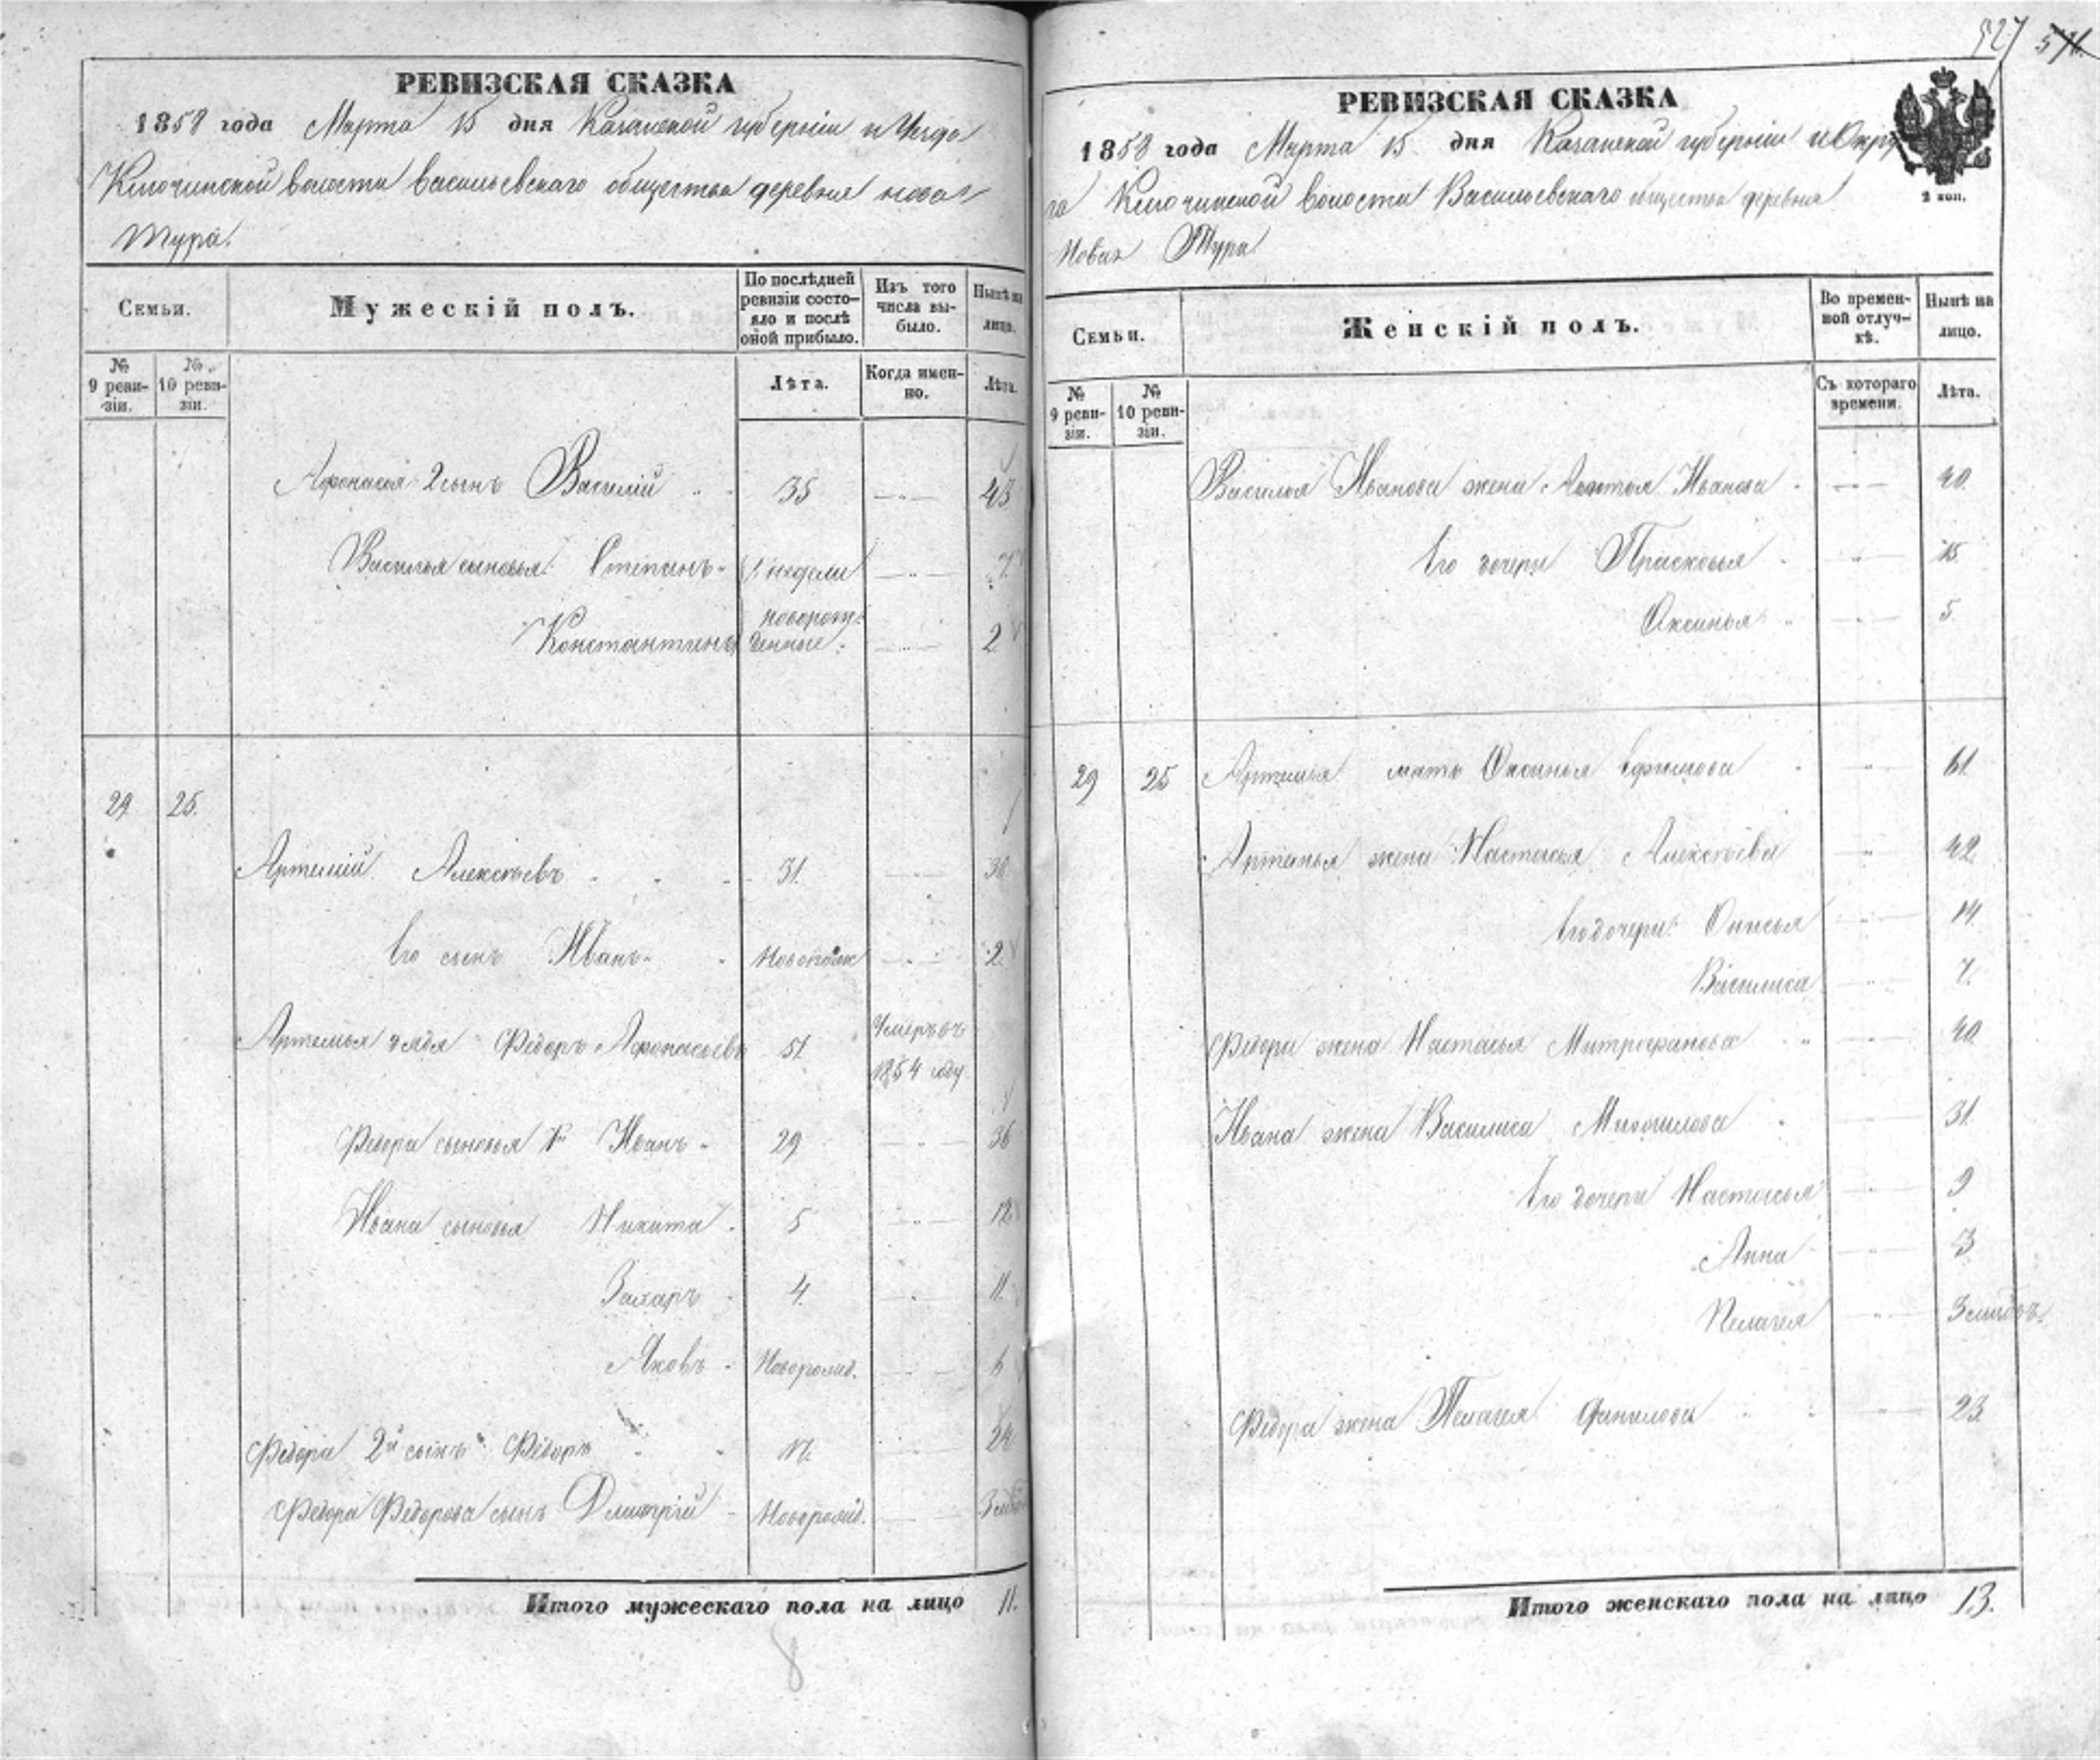 РЕВИЗСКАЯ СКАЗКА
1858 года Марта 15 дня Казанской губернiи и Уезда
Ключинской волости Васильевскаго общества деревня Новая
Тура.
Семьи.
Мужескiй полъ.
По послѣдней ревизiи состояло и послѣ оной прибыло.
Изъ того числа выбыло.
Нынѣ на лицо.
№ 9 ревизiи.
№ 10 ревизiи.
Лѣта.
Когда именно.
Лѣта.
Афонасья 2 сынъ Василiй 35 43
Василья сыновья Степанъ 1 недели 7
Константинъ новорожденные 2
29 25.
Артемiй Алексѣевъ 31. 38
Его сынъ Иванъ 2
Артемья дядя Федоръ Афонасьевъ 51 Умеръ въ
1854 году
Федора сыновья 1й Иванъ 29 36
Ивана сыновья Никита 5 12
Захаръ 4. 11.
Яковъ Новорожд. 6
Федора 2й сынъ Федоръ 17. 24
Федора Федорова сынъ Дмитрiй Новорожд.
Итого мужескаго пола на лицо 11.
8
527
РЕВИЗСКАЯ СКАЗКА
1858 года Марта 15 дня Казанской губернiи и Окру
га Ключинской волости Васильевскаго общества деревня
Новая Тура
2 коп.
Семьи.
Женскiй полъ.
Во временной отлучкѣ.
Нынѣ на лицо.
№ 9 ревизiи.
№ 10 ревизiи.
Съ котораго времени.
Лѣта.
Василья Иванова жена Иванова 40.
Его дочери Прасковья 15.
Оксинья 5.
29 25 Артемья мать Оксинья Ефимова 61.
Артемья жена Настасья Алексѣева 42.
Его дочери: 14.
Василиса 7.
Федора жена Настасья Митрофанова 40.
Ивана жена Василиса Михаилова 31.
Его дочери Настасья 9
Анна 3
Пелагея
Федора жена Пелагея Данилова 23.
Итого женскаго пола на лицо 13.